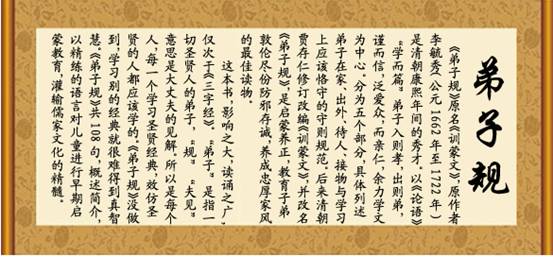 弟子规
《弟子规》原名《训蒙文》,原作者
李毓秀(公元1662年至1722年)
是清朝康熙年间的秀才。以《论语》
“学而篇”弟子入则孝,出则弟,
谨而信,泛爱众,而亲仁,余力学文
为中心。分为五个部分,具体列述
弟子在家、出外、待人、接物与学习
上应该恪守的守则规范。后来清朝
贾存仁修订改编《训蒙文》,并改名
《弟子规》,是启蒙养正,教育子弟
敦伦尽份防邪存诚,养成忠厚家风
的最佳读物。
这本书,影响之大,读诵之广,
仅次于《三字经》。“弟子”是指一
切圣贤人的弟子,“规”,“夫见”
意思是大丈夫的见解。所以是每个
人,每一个学习圣贤经典,效仿圣
贤的人都应该学的。《弟子规》没做
到,学习别的经典就很难得到真智
慧。《弟子规》共108句,概述简介,
以精练的语言对儿童进行早期启
蒙教育,灌输儒家文化的精髓。